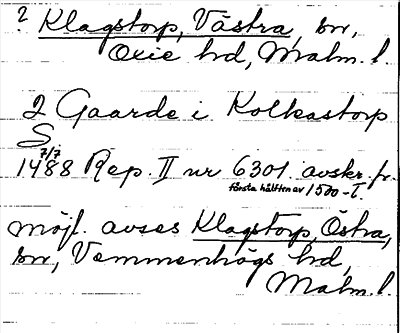 ? Klagstorp, Västra, sn,
Oxie hd, Malm. l.
2 Gaarde i Kolkastorp
S
7/7
1488 Rep. II nr 6301. avskr. fr.
första hälften av 1500-t.
möjl. avses Klagstorp, Östra,
sn, Vemmenhögs hd,
Malm. l.